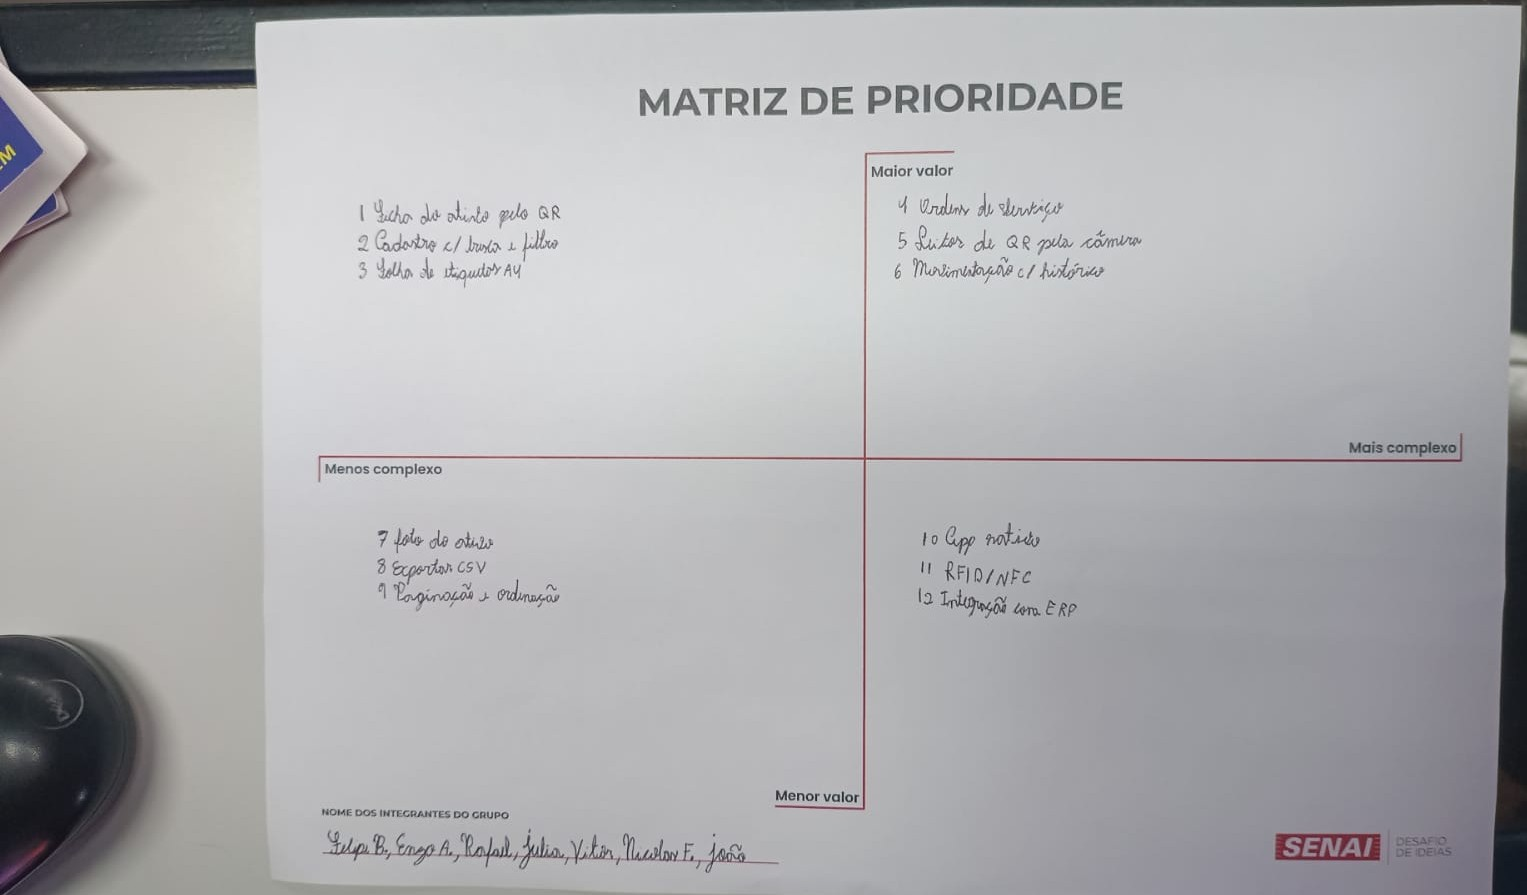 MATRIZ DE PRIORIDADE
Maior valor
1 Ficha do ativo pelo QR
2 Cadastro c/ busca e filtro
3 Folha de etiquetas A4
4 Ordens de serviço
5 Leitor de QR pela câmera
6 Movimentação c/ histórico
Mais complexo
Menos complexo
7 foto do ativo
8 Exportar CSV
9 Paginação e ordenação
10 App nativo
11 RFID/NFC
12 Integração com ERP
Menor valor
NOME DOS INTEGRANTES DO GRUPO
Felipe B., Enzo A., Rafael, Julia, Vitor, Nicolas F., João
SENAI
DESAFIO
DE IDEIAS
M